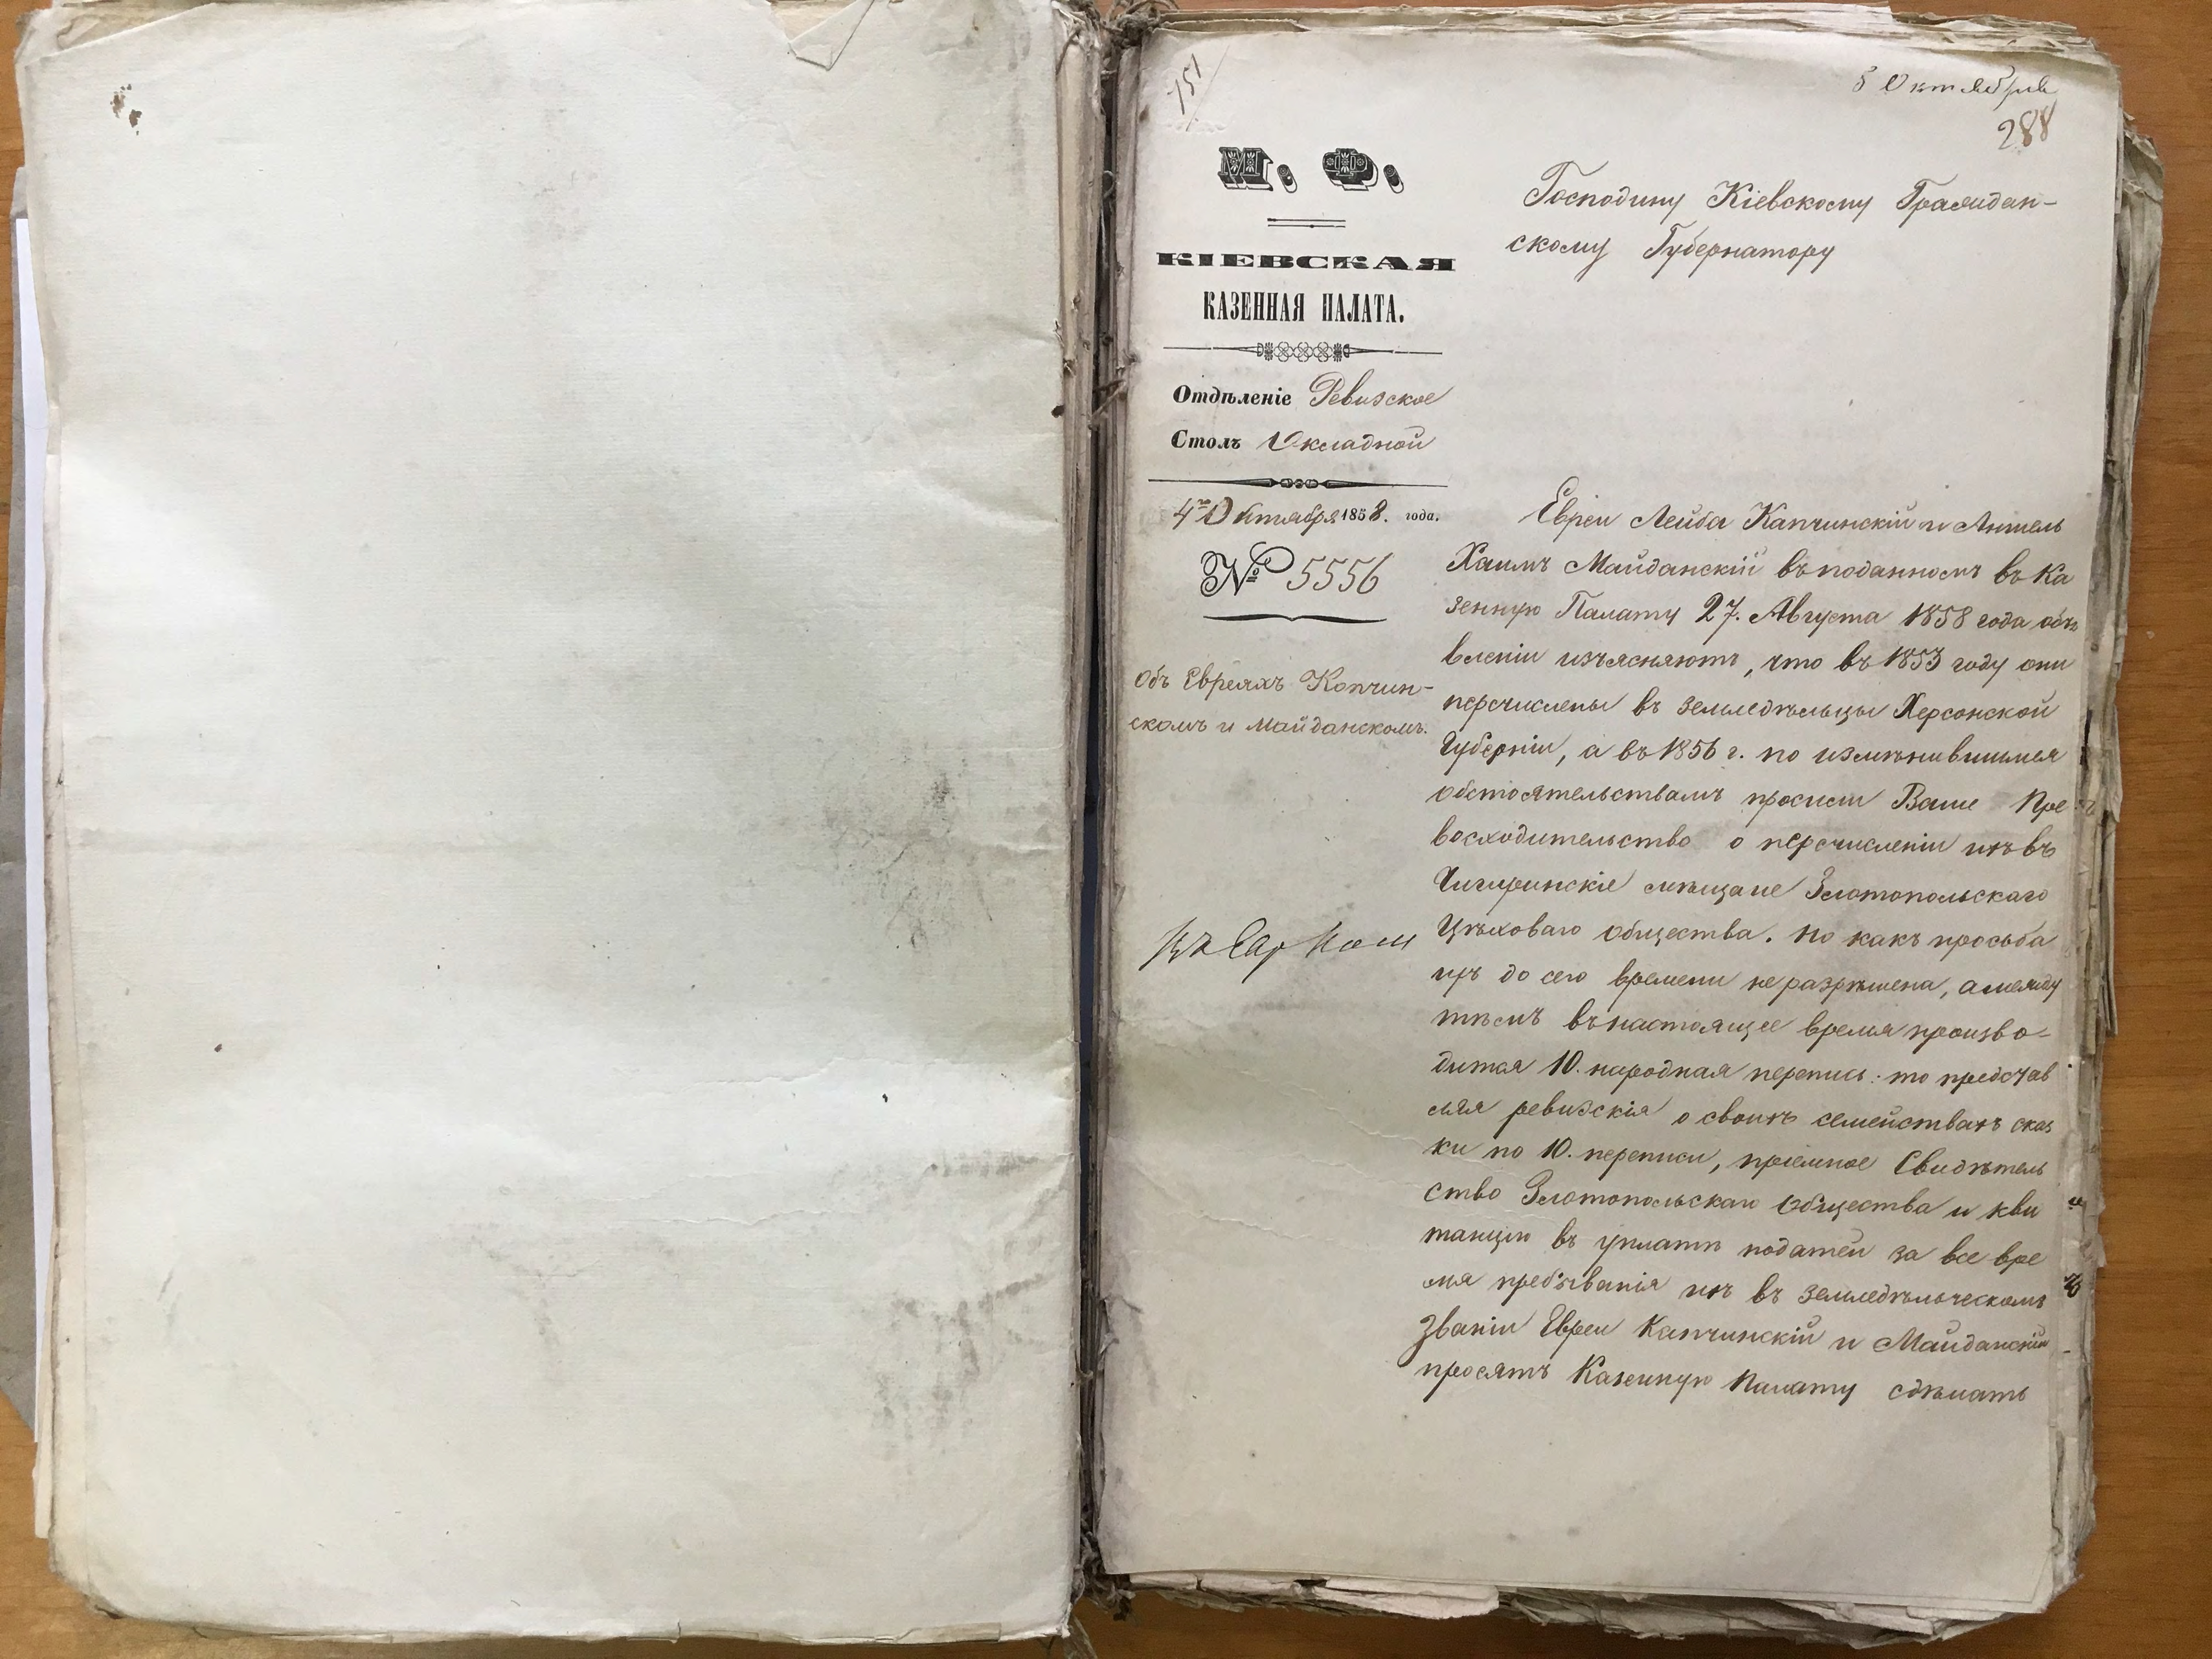 151
5 Октября
288
М. Ф.
КІЕВСКАЯ
КАЗЕННАЯ ПАЛАТА.
Отдѣленіе Ревизское
Столъ Окладной
4го Октября 1858. года.
№ 5556
Объ Евреяхъ Капчин-
скомъ и Майданскомъ.
Господину Кіевскому Граждан-
скому Губернатору
Евреи Лейба Капчинскій и Аншель
Хаимъ Майданскій въ поданномъ въ Ка
зенную Палату 27. Августа 1858 года объ
явленіи изъясняютъ, что въ 1853 году они
перечислены въ земледѣльцы Херсонской
Губерніи, а въ 1856 г. по измѣнившимся
обстоятельствамъ просили Ваше Пре
восходительство о перечисленіи ихъ въ
Чигиринскіе мѣщане Златопольскаго
Цѣховаго общества. но какъ просьба
ихъ до сего времени не разрѣшена, а между
тѣмъ въ настоящее время произво-
дится 10. народная перепись: то представ
ляя ревизскія о своихъ семействахъ сказ
ки по 10. переписи, пріемное Свидѣтель
ство Златопольскаго Общества и кви
танцію въ уплатѣ податей за все вре
мя пребыванія ихъ въ земледѣльческомъ
званіи Евреи Капчинскій и Майданскій
просятъ Казенную Палату сдѣлать